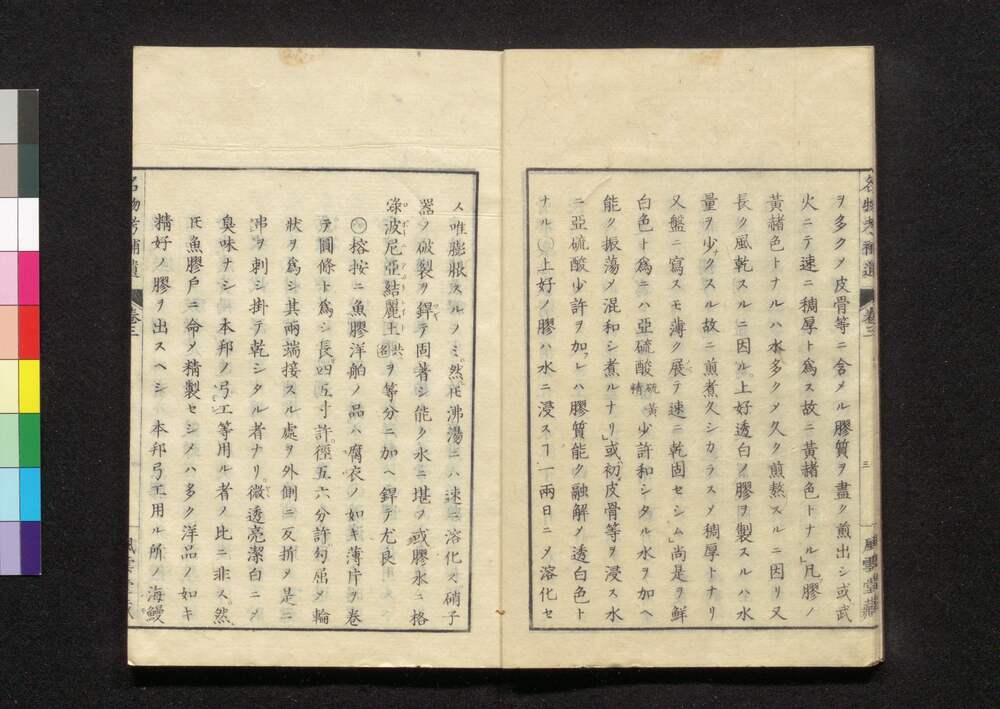 名物考補遺 卷三 三 風雲堂藏
ヲ多クメ皮骨等ニ含メル膠質ヲ盡ク煎出シ或武
火ニテ速ニ稠厚ト爲ス故ニ黃赭色トナル」凡膠ノ
黃赭色トナルハ水多クメ久ク煎熬スルニ因リ又
長ク風乾スルニ因ル上好透白ノ膠ヲ製スルハ水
量ヲ少クスル故ニ煎煮久シカラスメ稠厚トナリ
又盤ニ寫スモ薄ク展テ速ニ乾固セシム」尚是ヲ鮮
白色ト爲ニハ亞硫酸硫黃精少許和シタル水ヲ加ヘ
能ク振蕩メ混和シ煮ルナリ」或初皮骨等ヲ浸ス水
ニ亞硫酸少許ヲ加レハ膠質能ク融解メ透白色ト
ナル○上好ノ膠ハ水ニ浸スヿ一兩日ニメ溶化セ
ス唯膨脹スルノミ然𪜈沸湯ニハ速ニ溶化ス硝子
器ノ破裂ヲ銲テ固著シ能ク水ニ堪フ或膠水ニ格
碌波尼亞結麗土ヲ等分ニ加ヘ銲テ尤良トス
○榕按ニ魚膠洋舶ノ品ハ腐衣ノ如キ薄片ヲ卷
テ圓條ト爲シ長四五寸許徑五六分許勾屈メ輪
狀ヲ爲シ其兩端接スル處ヲ外側ニ反折メ是ニ
串ヲ刺シ掛テ乾シタル者ナリ微透亮潔白ニメ
臭味ナシ本邦ノ弓工等用ル者ノ比ニ非ス然
𪜈魚膠戶ニ命メ精製セシメハ多ク洋品ノ如キ
精好ノ膠ヲ出スヘシ本邦弓工用ル所ノ海鰻
名物考補遺 卷三